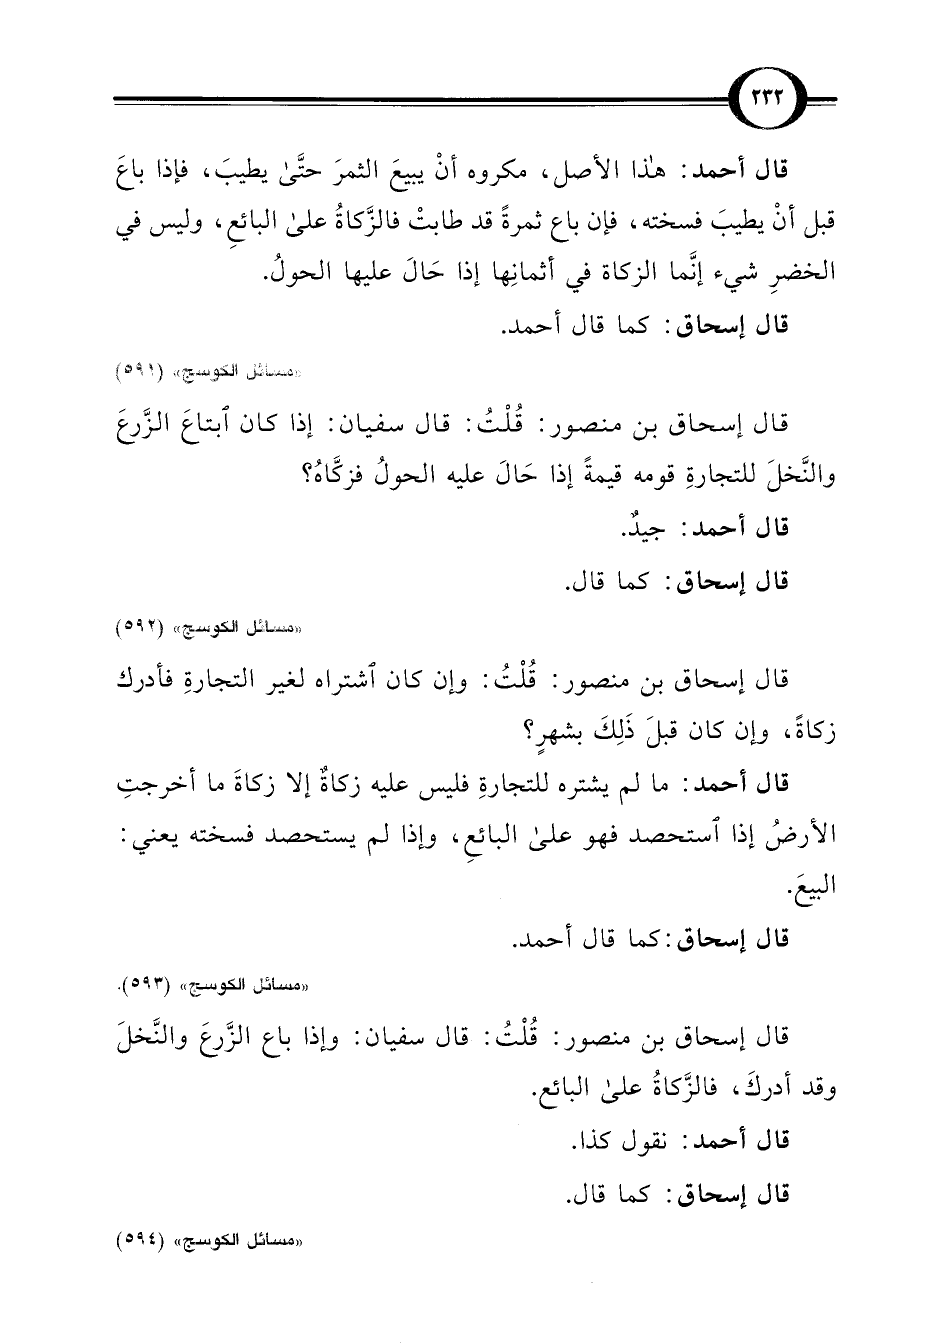 ٢٣٢
قال أحمد: هٰذا الأصل، مكروه أنْ يبيعَ الثمرَ حتَّىٰ يطيبَ، فإذا باعَ
قبل أنْ يطيبَ فسخته، فإن باع ثمرةً قد طابتْ فالزَّكاةُ علىٰ البائعِ، وليس في
الخضرِ شيء إنَّما الزكاة في أثمانِها إذا حَالَ عليها الحولُ.
قال إسحاق: كما قال أحمد.
«مسائل الكوسج» (٥٩١)
قال إسحاق بن منصور: قُلْتُ: قال سفيان: إذا كان ٱبتاعَ الزَّرعَ
والنَّخلَ للتجارةِ قومه قيمةً إذا حَالَ عليه الحولُ فزكَّاهُ؟
قال أحمد: جيدٌ.
قال إسحاق: كما قال.
«مسائل الكوسج» (٥٩٢)
قال إسحاق بن منصور: قُلْتُ: وإن كان ٱشتراه لغير التجارةِ فأدرك
زكاةً، وإن كان قبلَ ذَلِكَ بشهرٍ؟
قال أحمد: ما لم يشتره للتجارةِ فليس عليه زكاةٌ إلا زكاةَ ما أخرجتِ
الأرضُ إذا ٱستحصد فهو علىٰ البائعِ، وإذا لم يستحصد فسخته يعني:
البيعَ.
قال إسحاق: كما قال أحمد.
«مسائل الكوسج» (٥٩٣).
قال إسحاق بن منصور: قُلْتُ: قال سفيان: وإذا باع الزَّرعَ والنَّخلَ
وقد أدركَ، فالزَّكاةُ علىٰ البائع.
قال أحمد: نقول كذا.
قال إسحاق: كما قال.
«مسائل الكوسج» (٥٩٤)